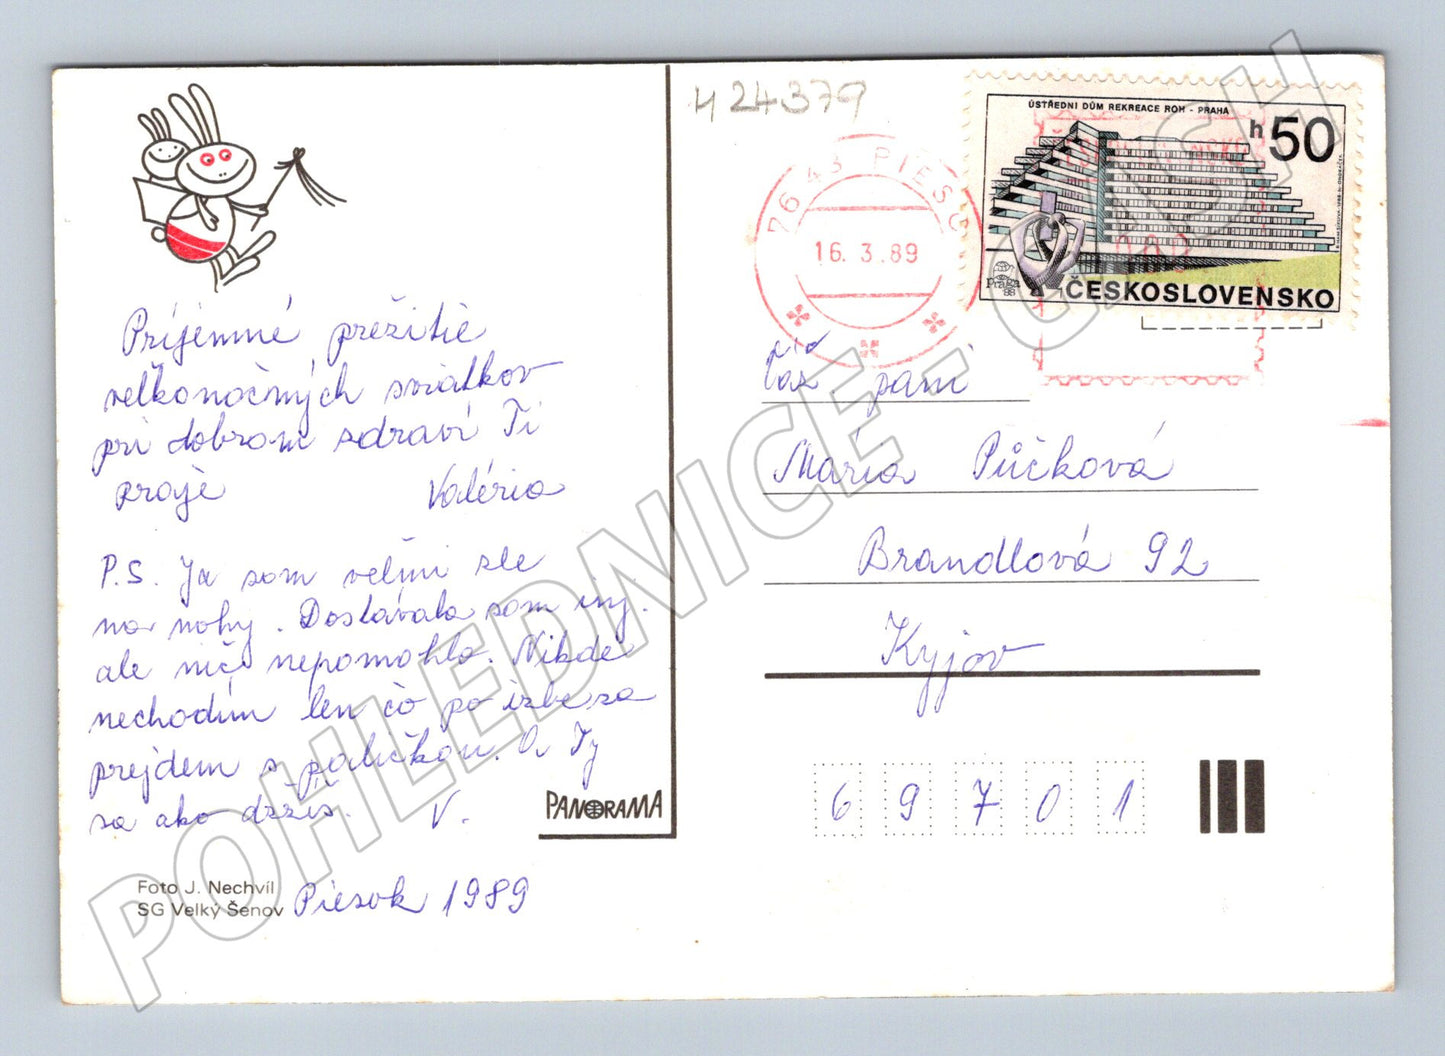 424379
ÚSTŘEDNI DŮM REKREACE ROH - PRAHA
h50
Praga 88
ČESKOSLOVENSKO
976 43 PIESO
16. 3. 89
Príjemné prežitie
veľkonočných sviatkov
pri dobrom zdraví Ti
praje Valéria
P.S. Ja som veľmi zle
na nohy. Dostávala som inj.
ale nič nepomohlo. Nikde
nechodím len čo po izbe sa
prejdem s paličkou. A Ty
sa ako držíš. V.
PANORAMA
Foto J. Nechvíl
SG Velký Šenov
Piesok 1989
Váž. pani
Mária Půčková
Brandlová 92
Kyjov
69701
POHLEDNICE - CASH